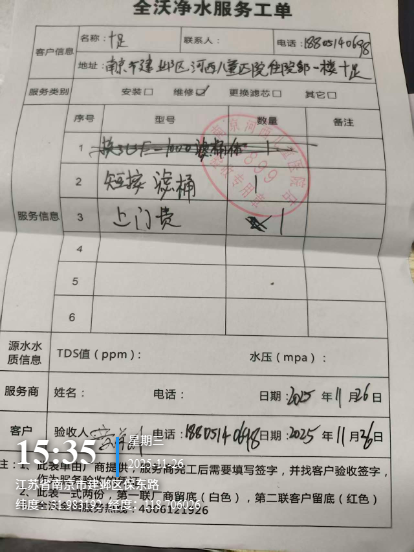 全沃净水服务工单
客户信息 名称：十足 联系人： 电话：18805140698
地址：南京市建邺区河西儿童医院住院部一楼十足
服务类别 安装□ 维修☑ 更换滤芯□ 其它□
服务信息 序号 型号 数量 备注
1 1
2 短接滤桶 1
3 上门费 1
4
5
6
源水水质信息 TDS值（ppm）： 水压（mpa）：
服务商 姓名： 电话： 日期：2025年11月26日
客户 验收人： 电话：18805140698 日期：2025年11月26日
15:35 星期三
2025-11-26
注：1、此表单由厂商提供，服务商完工后需要填写签字，并找客户验收签字，
江苏省南京市建邺区保东路
2、此表一式两份，第一联厂商留底（白色），第二联客户留底（红色）
4006121926